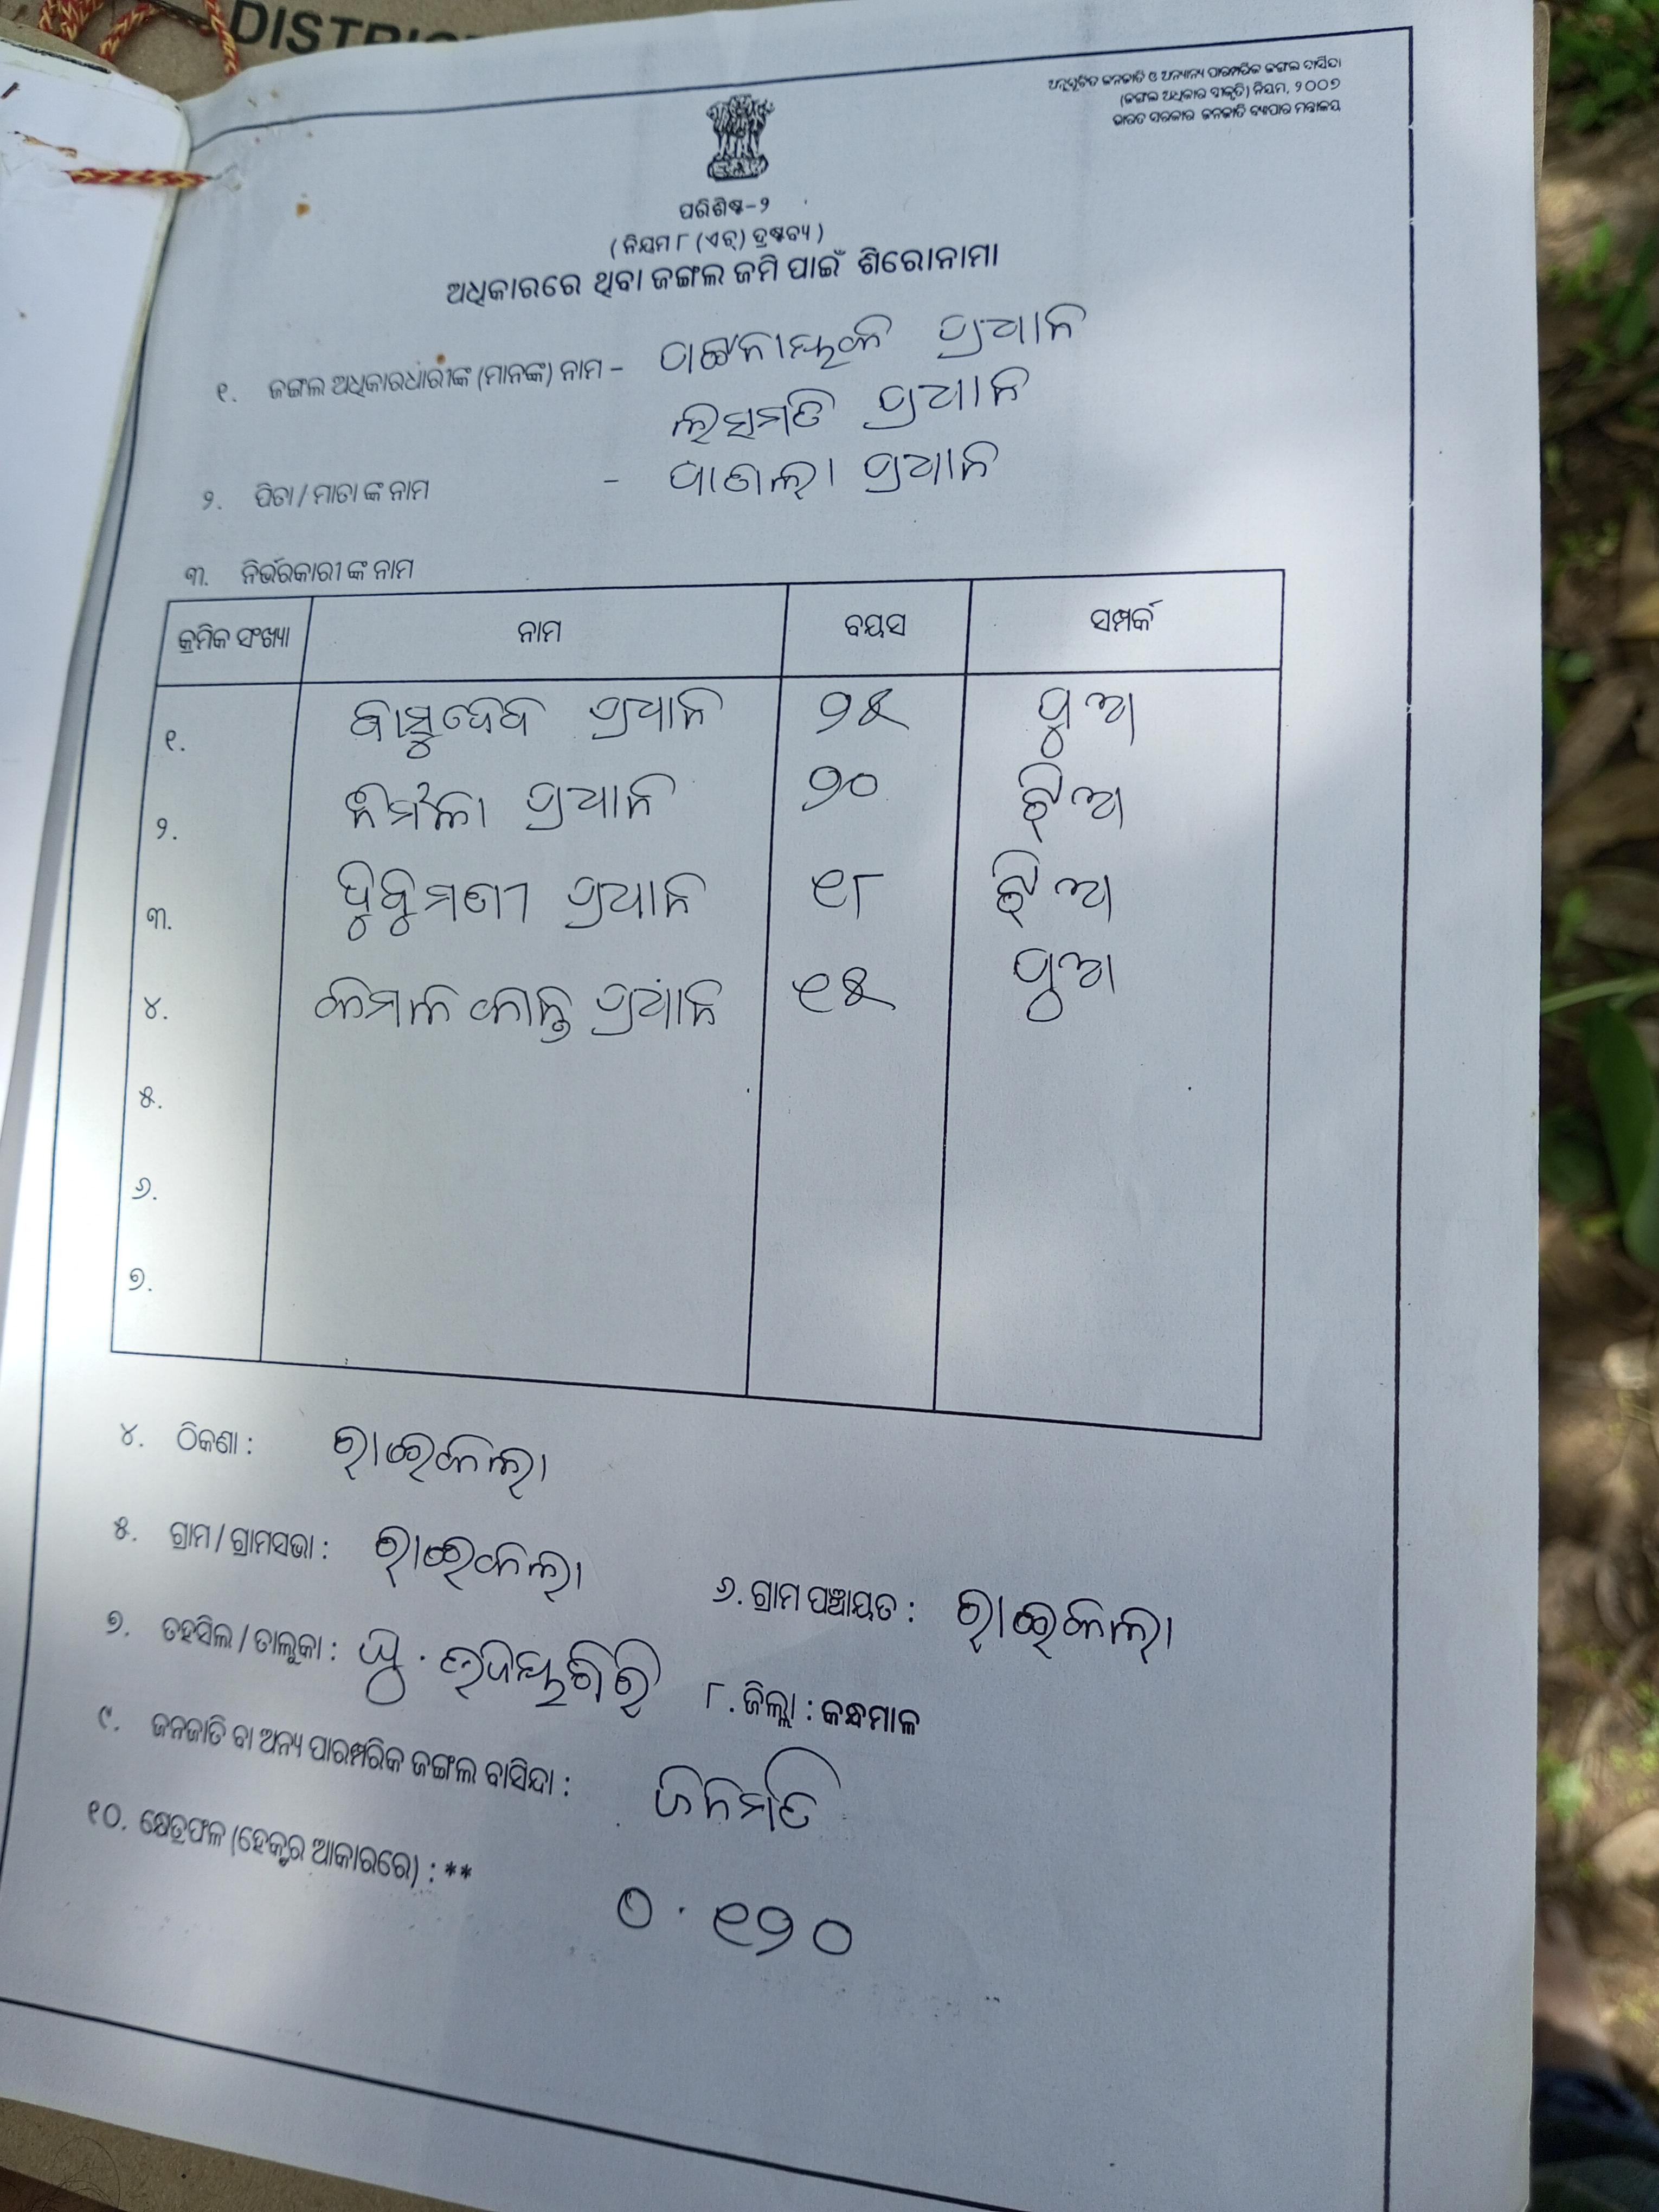 ଅନୁସୂଚିତ ଜନଜାତି ଓ ଅନ୍ୟାନ୍ୟ ପାରମ୍ପରିକ ଜଙ୍ଗଲ ବାସିନ୍ଦା
(ଜଙ୍ଗଲ ଅଧିକାର ସ୍ୱୀକୃତି) ନିୟମ, ୨୦୦୭
ଭାରତ ସରକାର ଜନଜାତି ବ୍ୟାପାର ମନ୍ତ୍ରାଳୟ
ପରିଶିଷ୍ଟ-୨
(ନିୟମ ୮ (ଏଚ୍) ଦ୍ରଷ୍ଟବ୍ୟ)
ଅଧିକାରରେ ଥିବା ଜଙ୍ଗଲ ଜମି ପାଇଁ ଶିରୋନାମା
୧. ଜଙ୍ଗଲ ଅଧିକାରଧାରୀଙ୍କ (ମାନଙ୍କ) ନାମ - ପ୍ରଧାନ
ପ୍ରଧାନ
୨. ପିତା / ମାତା ଙ୍କ ନାମ - ପ୍ରଧାନ
୩. ନିର୍ଭରକାରୀ ଙ୍କ ନାମ
କ୍ରମିକ ସଂଖ୍ୟା ନାମ ବୟସ ସମ୍ପର୍କ
୧. ବାସୁଦେବ ପ୍ରଧାନ ୨୫ ପୁଅ
୨. ନିର୍ମଳା ପ୍ରଧାନ ୨୦ ଝିଅ
୩. ପ୍ରଧାନ ୧୮ ଝିଅ
୪. କମଳ କାନ୍ତ ପ୍ରଧାନ ୧୫ ପୁଅ
୫.
୬.
୭.
୪. ଠିକଣା : ରାଇକଲା
୫. ଗ୍ରାମ / ଗ୍ରାମସଭା : ରାଇକଲା
୬. ଗ୍ରାମ ପଞ୍ଚାୟତ : ରାଇକଲା
୭. ତହସିଲ / ତାଲୁକା : ଉଦୟଗିରି
୮. ଜିଲ୍ଲା : କନ୍ଧମାଳ
୯. ଜନଜାତି ବା ଅନ୍ୟ ପାରମ୍ପରିକ ଜଙ୍ଗଲ ବାସିନ୍ଦା :
୧୦. କ୍ଷେତ୍ରଫଳ (ହେକ୍ଟର ଆକାରରେ) : ** ୦.୧୨୦